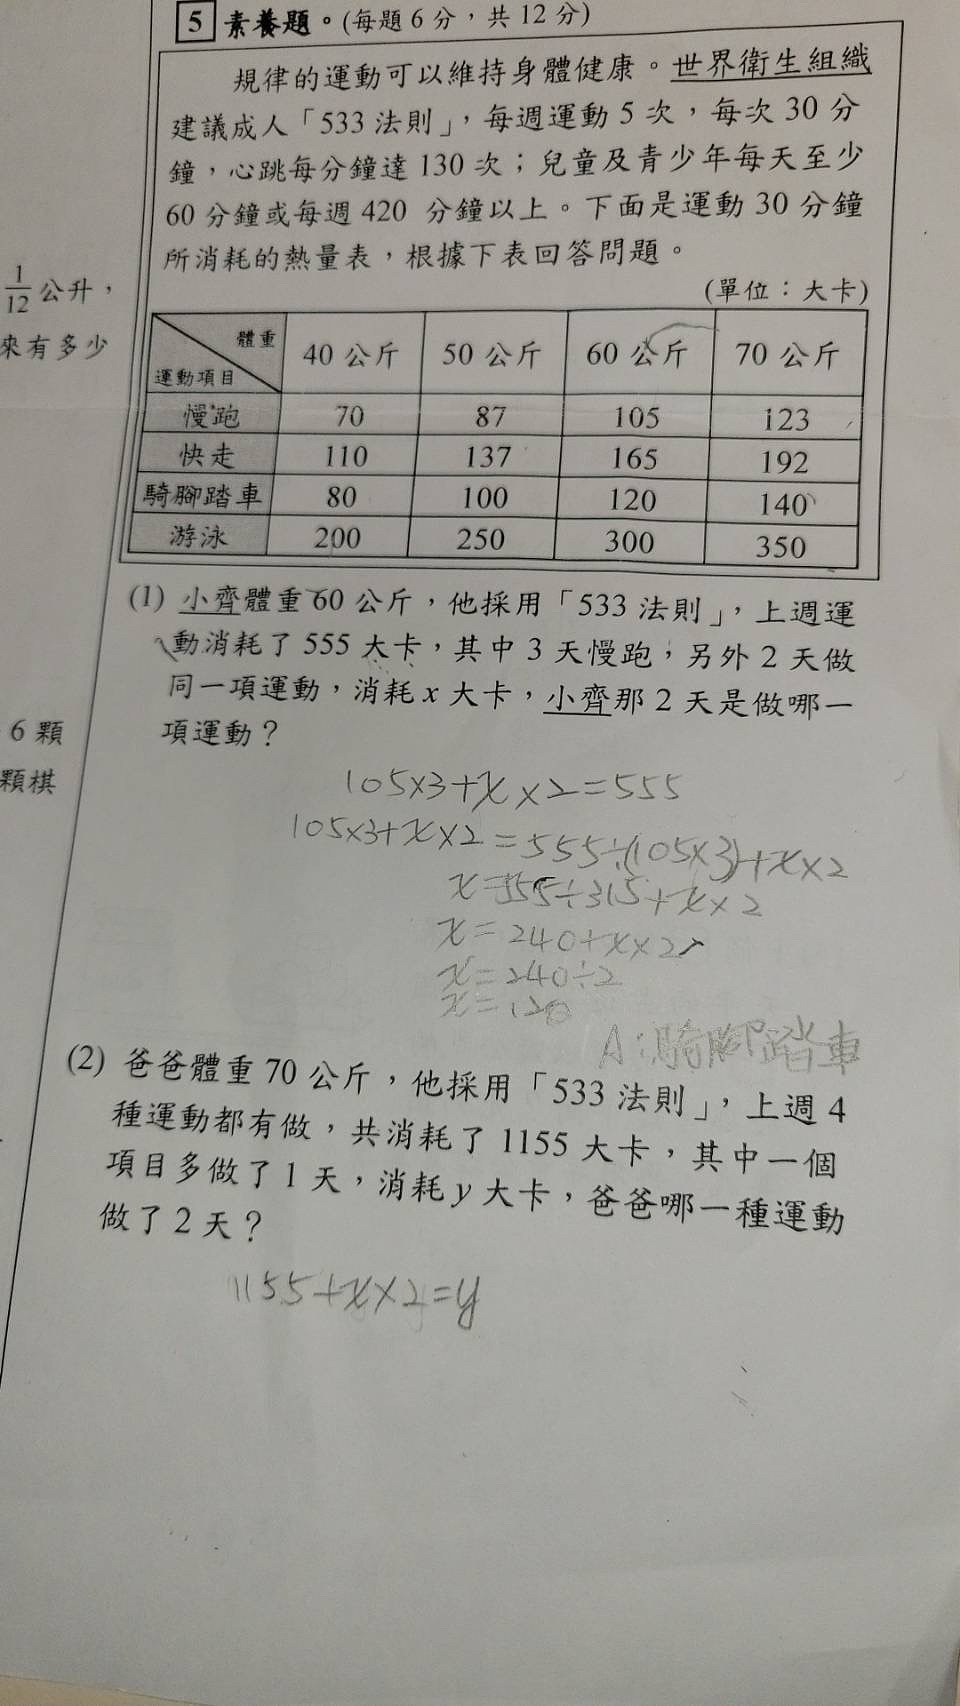 5 素養題。(每題 6 分，共 12 分)
規律的運動可以維持身體健康。世界衛生組織
建議成人「533 法則」，每週運動 5 次，每次 30 分
鐘，心跳每分鐘達 130 次；兒童及青少年每天至少
60 分鐘或每週 420 分鐘以上。下面是運動 30 分鐘
所消耗的熱量表，根據下表回答問題。
(單位：大卡)
體重 運動項目 40 公斤 50 公斤 60 公斤 70 公斤
慢跑 70 87 105 123
快走 110 137 165 192
騎腳踏車 80 100 120 140
游泳 200 250 300 350
(1) 小齊體重 60 公斤，他採用「533 法則」，上週運
動消耗了 555 大卡，其中 3 天慢跑，另外 2 天做
同一項運動，消耗 x 大卡，小齊那 2 天是做哪一
項運動？
105×3+x×2=555
105×3+x×2=555÷(105×3)+x×2
x=555÷315+x×2
x=240+x×2
x=240÷2
x=120
A:騎腳踏車
(2) 爸爸體重 70 公斤，他採用「533 法則」，上週 4
種運動都有做，共消耗了 1155 大卡，其中一個
項目多做了 1 天，消耗 y 大卡，爸爸哪一種運動
做了 2 天？
1155+x×2=y
1/12 公升，
來有多少
6 顆
顆棋